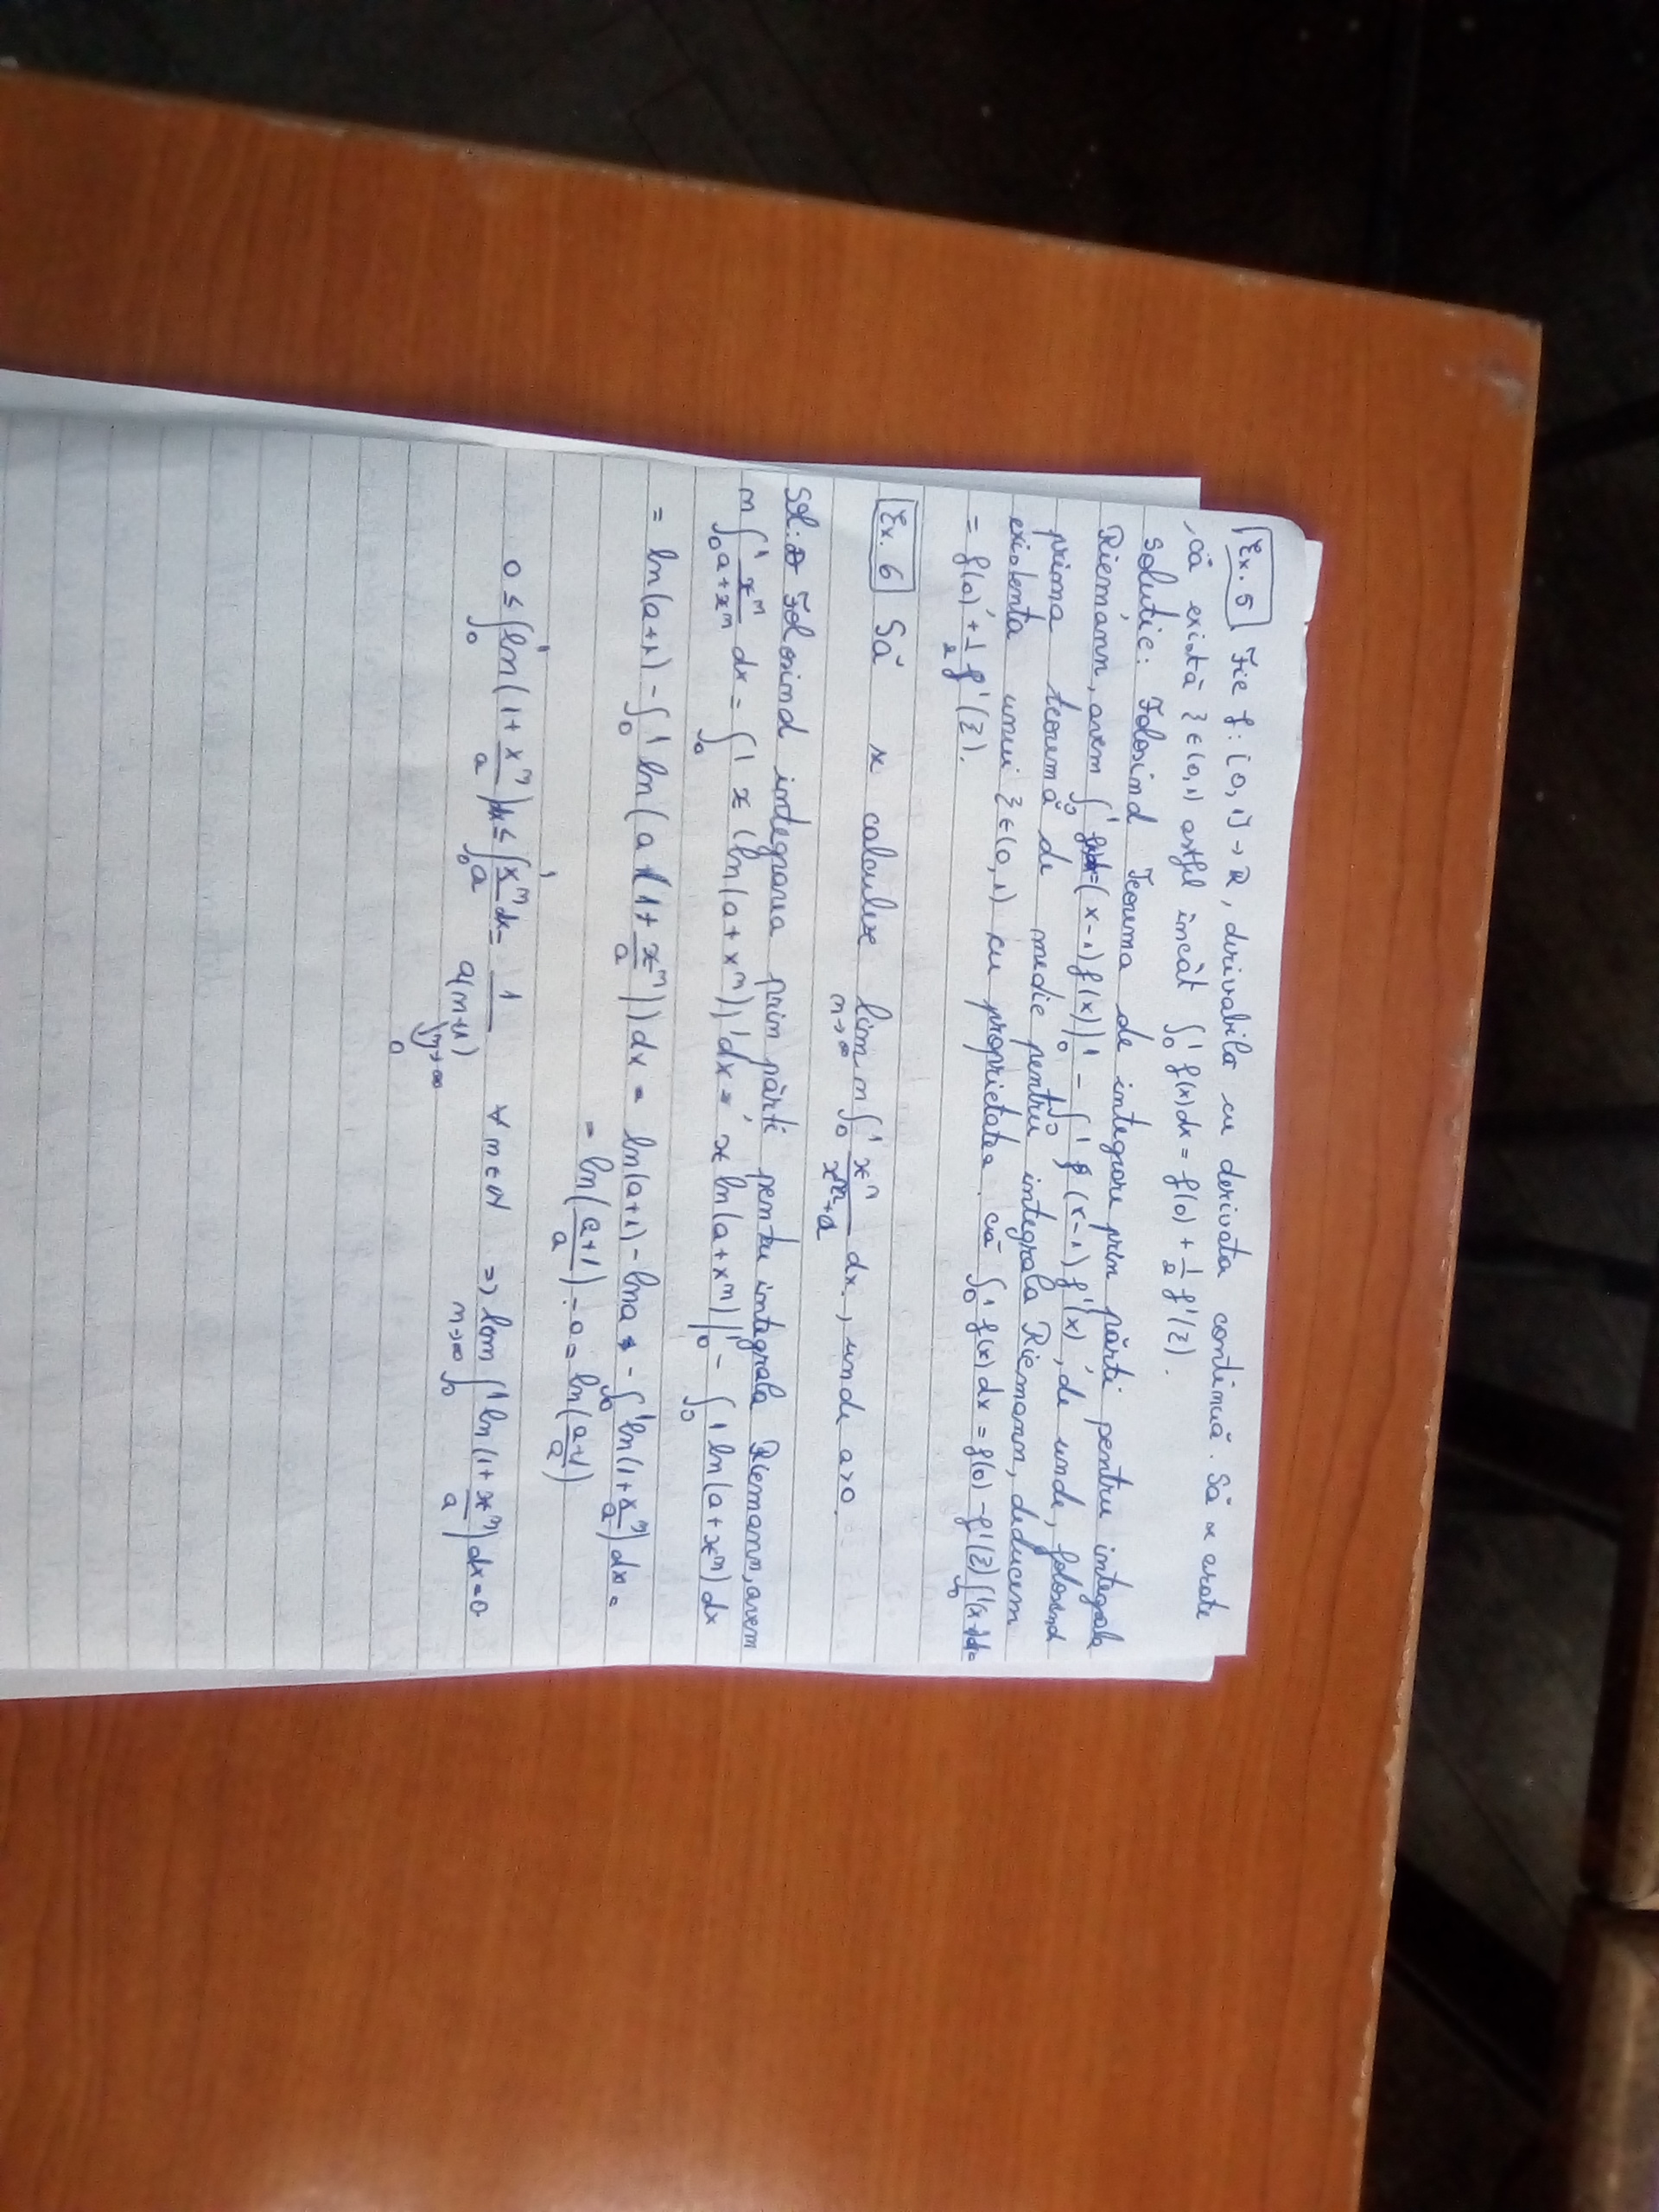 Ex. 5 Fie f: [0, 1] → R, derivabilă cu derivata continuă. Să se arate
că există ξ ∈ (0,1) astfel încât ∫₀¹ f(x)dx = f(0) + 1/2 f'(ξ).
Soluție: Folosind Teorema de integrare prin părți pentru integrala
Riemann, avem ∫₀¹ f(x)dx = (x-1) f(x)|₀¹ - ∫₀¹ (x-1) f'(x), de unde, folosind
prima teoremă de medie pentru integrala Riemann, deducem
existența unui ξ ∈ (0,1) cu proprietatea că ∫₀¹ f(x) dx = f(0) - f'(ξ) ∫₀¹ (x-1)dx
= f(0) + 1/2 f'(ξ).
Ex. 6 Să se calculeze lim n→∞ n ∫₀¹ xⁿ/(xⁿ+a) dx, unde a>0.
Sol: Folosind integrarea prin părți pentru integrala Riemann, avem
n ∫₀¹ xⁿ/(a+xⁿ) dx = ∫₀¹ x (ln(a+xⁿ))' dx = x ln(a+xⁿ)|₀¹ - ∫₀¹ ln(a+xⁿ) dx
= ln(a+1) - ∫₀¹ ln(a(1+xⁿ/a)) dx = ln(a+1) - ln a - ∫₀¹ ln(1+xⁿ/a) dx =
= ln((a+1)/a) - 0 = ln((a+1)/a)
0 ≤ ∫₀¹ ln(1+xⁿ/a) dx ≤ ∫₀¹ xⁿ/a dx = 1/(a(n+1)) ∀ n ∈ N ⇒ lim n→∞ ∫₀¹ ln(1+xⁿ/a) dx = 0
↓ n→∞
0